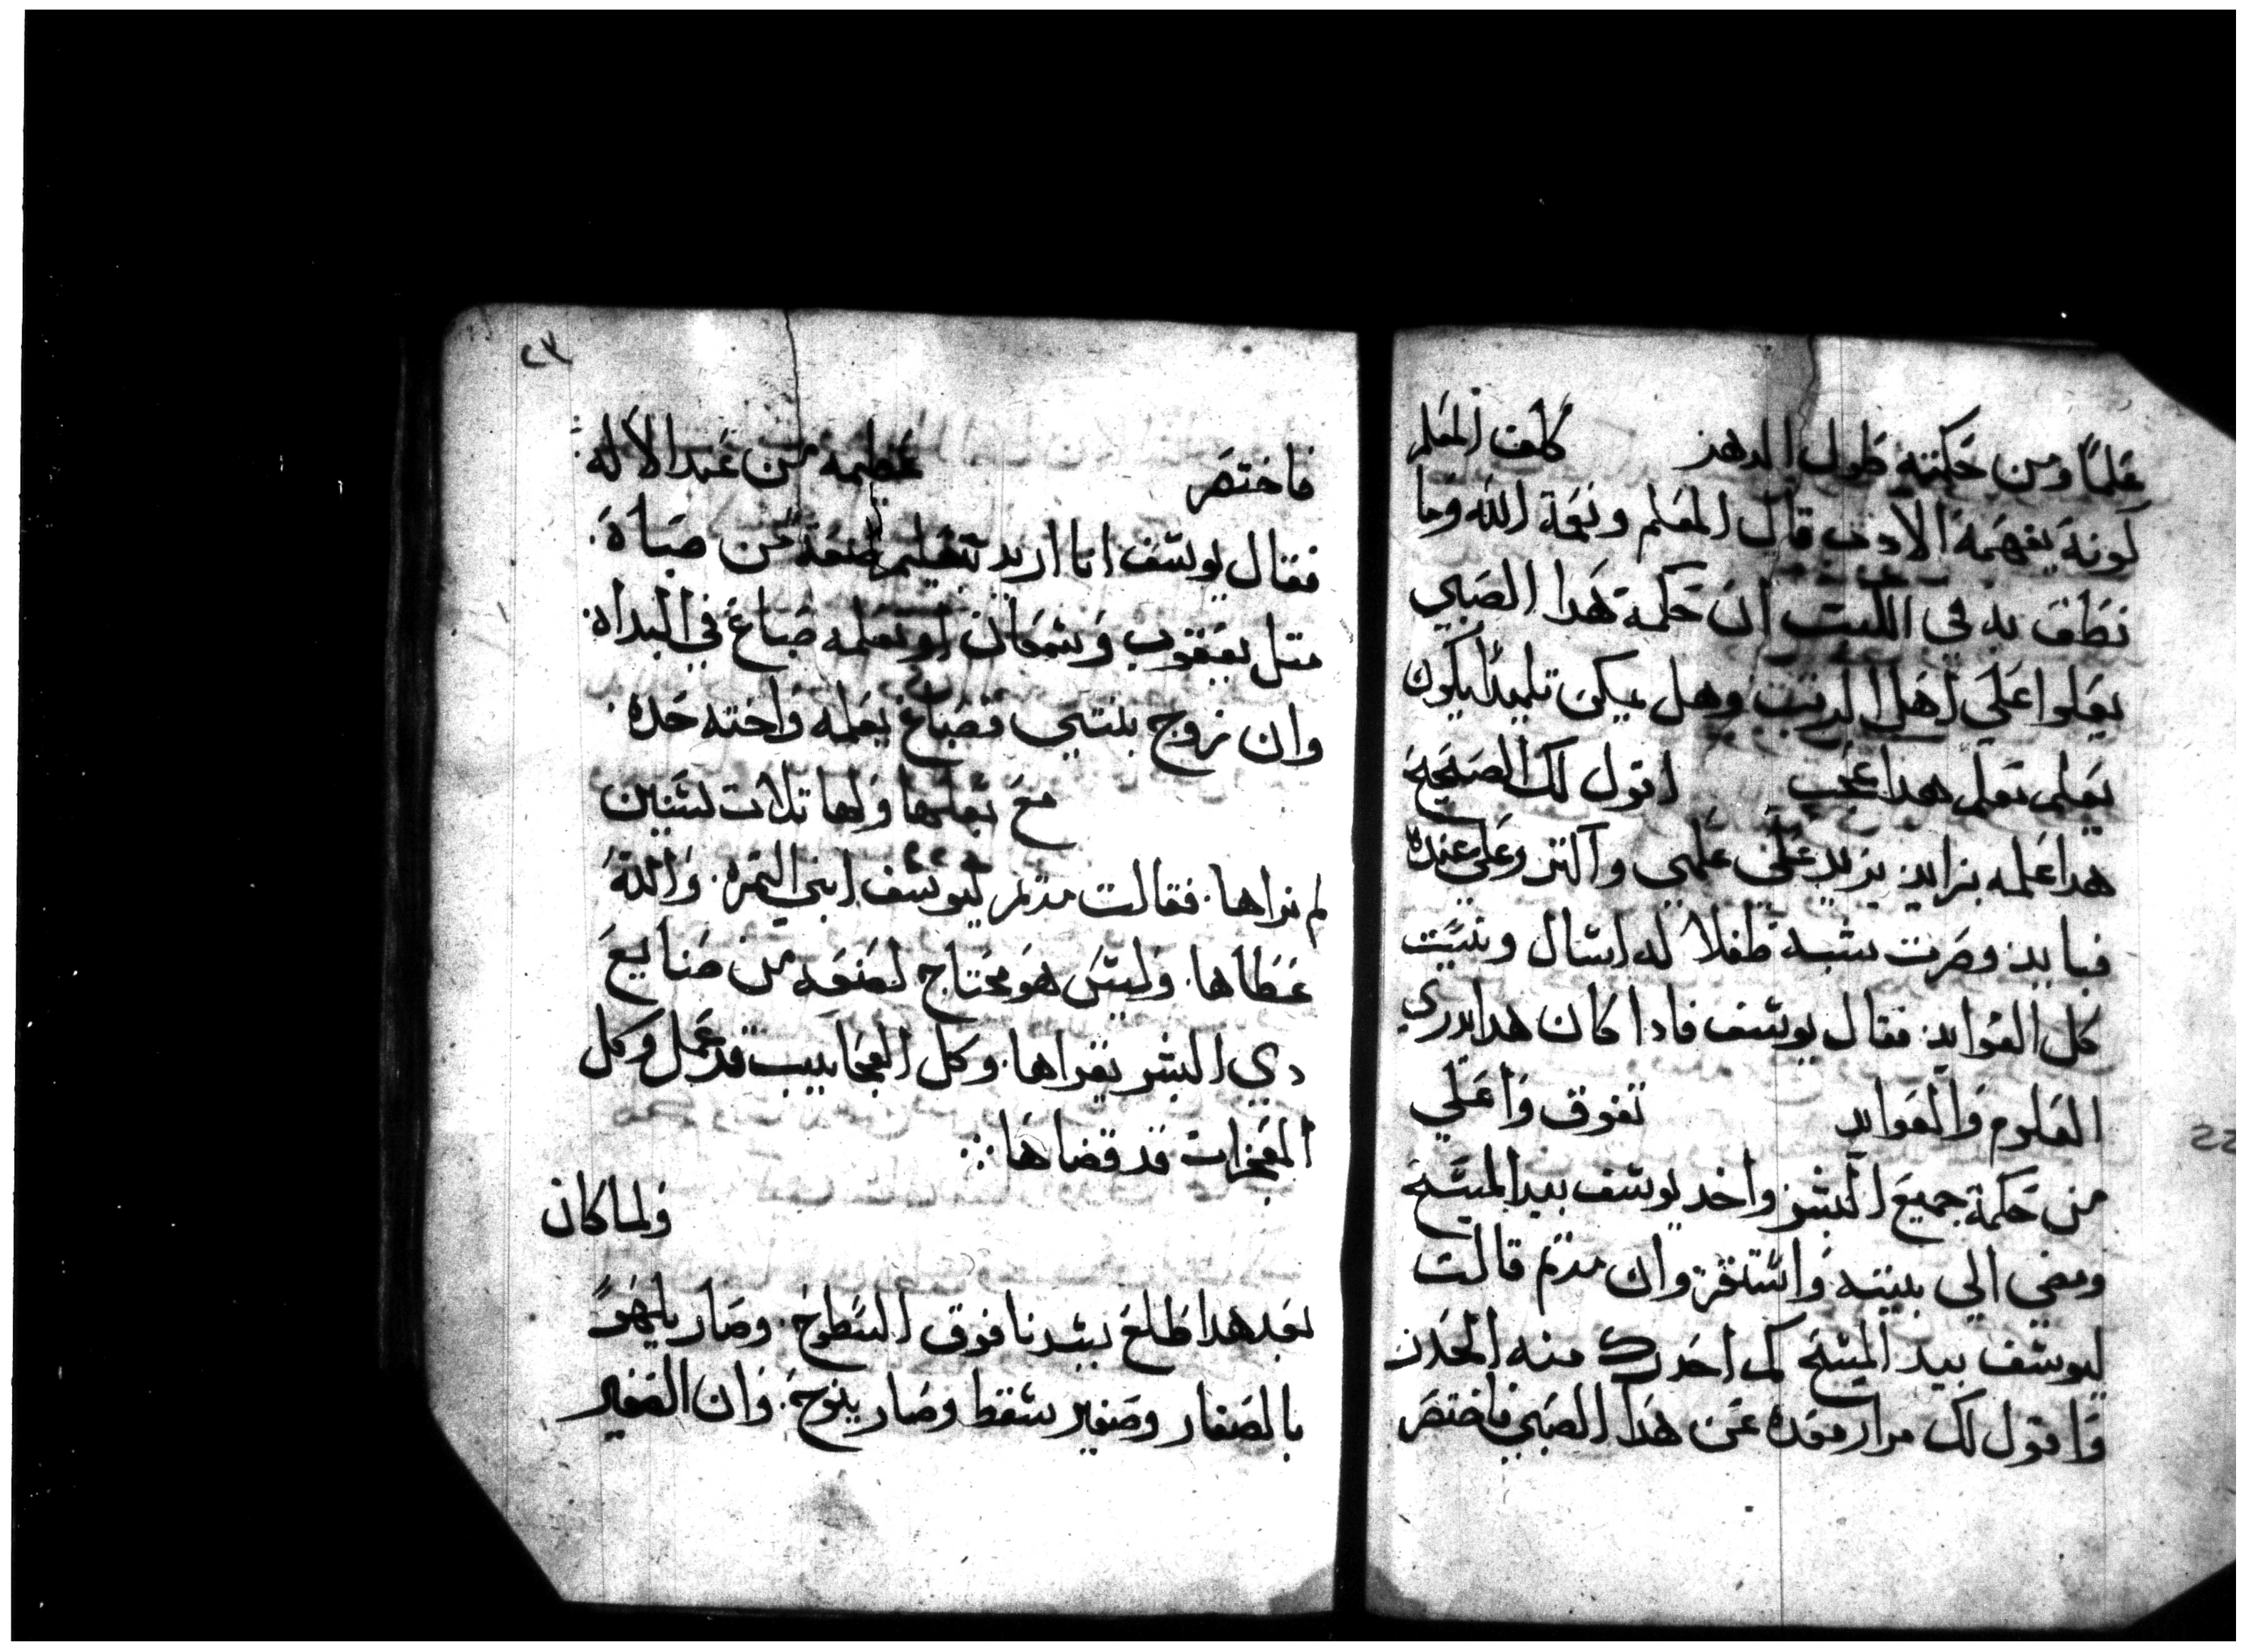 علمًا ومن حكمته طول الدهر كلمت المعلم
كونه يفهمه الادب قال المعلم ونعمة الله وما
نطق به في الكتب ان حكمة هدا الصبي
يعلوا علي اهل الرتب وهل يمكن تلميدًا يكون
يعلمى نعلم هدا عجب اقول لك الصحيح
هدا علمه بزايد يزيد على علمي واكتر وعلي عنده
فبايد وصرت شبه طفلا له اسال ونبيت
كل الفوايد فقال يوسف فادا كان هدا يدري
العلوم والفوايد تفوق واعلي
من حكمة جميع البشر واخد يوسف بيد المسيح
ومضي الي بيته واستقر وان مريم قالت
ليوسف بيد المسيح لم احدرك منه الحدر
واقول لك مرار معده عن هدا الصبي فاختصر
٢٣
فاختصر عظيمه من عند الاله
فقال يوسف انا اريد تتعليم صنعه من صباة
متل يعقوب وسمعان او نعلمه صباغ في البداة
وان زوج بنتي فصباغ يعلمه واخته حده
مع بعلها ولها تلات سنين
لم نراها فقالت مريم ليوسف ابني التمره والله
عطاها وليس هو محتاج لصنعه من صنايع
دي البشر يقراها وكل العجايب قد عمل وكل
المعجزات قد قضاها
ولما كان
بعد هدا طلع سيدنا فوق السطوح وصار يلهوا
بالصغار وصغير سقط وصار ينوح وان الصغير